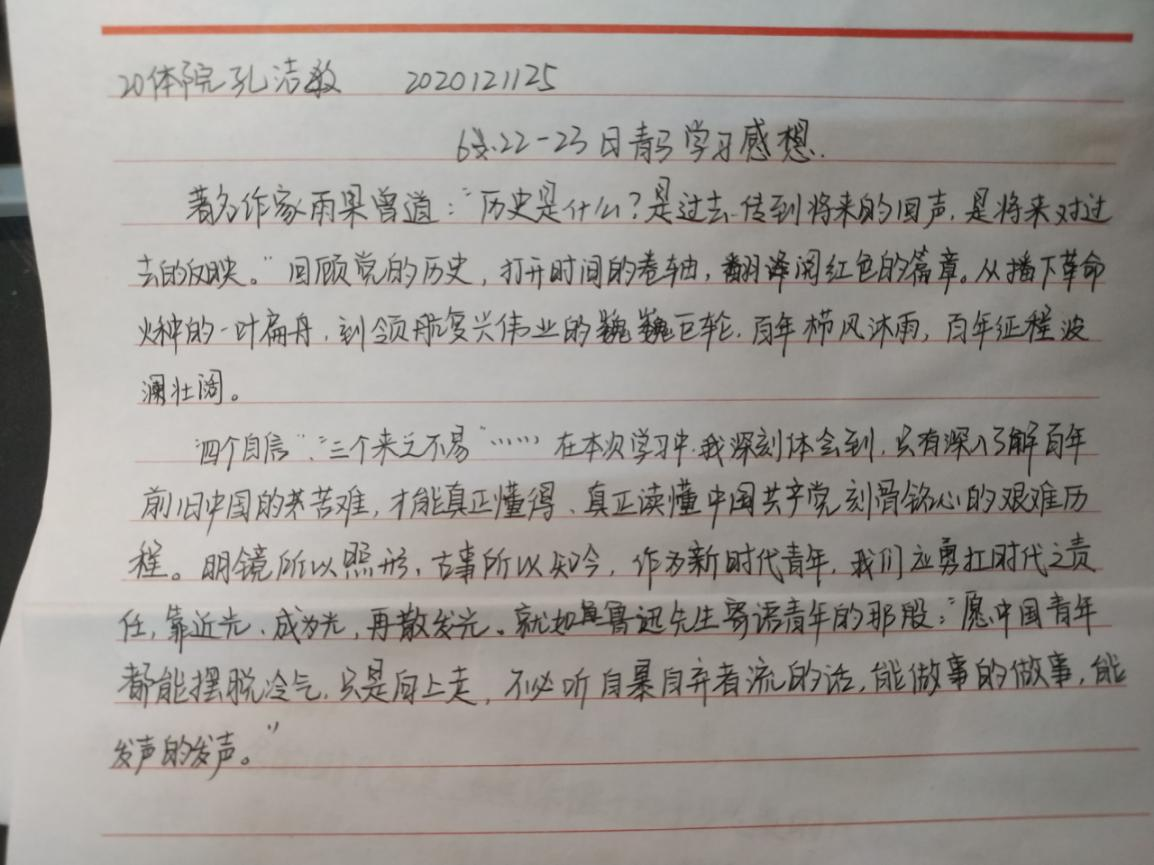 20体院孔洁敏 2020121125
6.22-23日青马学习感想.
著名作家雨果曾道:“历史是什么?是过去传到将来的回声,是将来对过
去的反映。”回顾党的历史,打开时间的卷轴,翻阅红色的篇章。从播下革命
火种的一叶扁舟,到领航复兴伟业的巍巍巨轮.百年栉风沐雨,百年征程波
澜壮阔。
“四个自信”、“三个来之不易”……在本次学习中.我深刻体会到,只有深入了解百年
前旧中国的苦难,才能真正懂得、真正读懂中国共产党刻骨铭心的艰难历
程。明镜所以照形,古事所以知今,作为新时代青年,我们应勇扛时代之责
任,靠近光、成为光,再散发光。就如鲁迅先生寄语青年的那般:“愿中国青年
都能摆脱冷气,只是向上走,不必听自暴自弃者流的话,能做事的做事,能
发声的发声。”